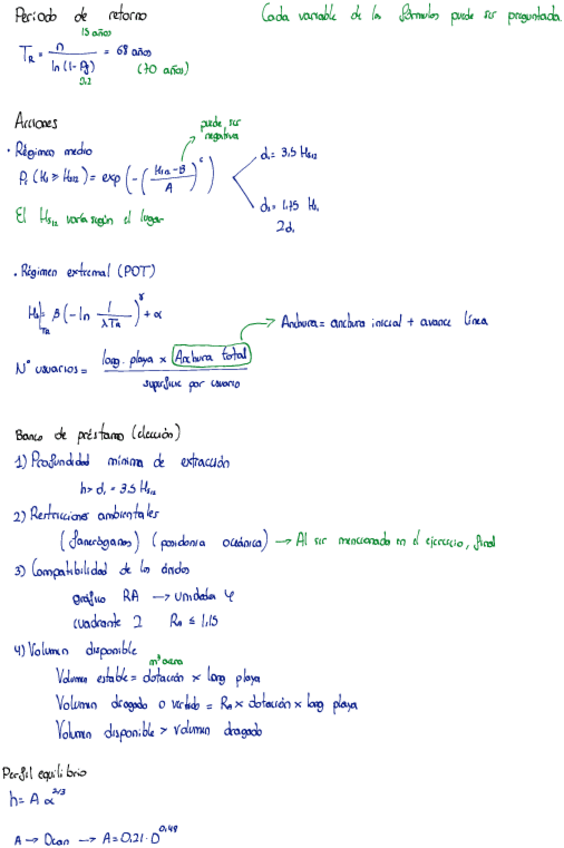 Periodo de retorno
Cada variable de las fórmulas puede ser preguntada
15 años
T_R = n / ln (1 - Pf) = 68 años
0.2
(70 años)
Acciones
puede ser negativa
· Régimen medio
P_r (Hs ≥ Hs12) = exp (-((Hs12 - B) / A)^c)
d_l = 3.5 Hs12
d_s = 1,75 d_l
2d_l
El Hs12 varía según el lugar
. Régimen extremal (POT)
Hs|_TR = β (-ln 1 / λTR)^γ + α
Anchura = anchura inicial + avance línea
Nº usuarios = long. playa x Anchura total / superficie por usuario
Banco de préstamo (elección)
1) Profundidad mínima de extracción
h > d_l = 3.5 Hs12
2) Restricciones ambientales
(fanerógamas) (posidonia oceánica) → Al ser mencionado en el ejercicio, final
3) Compatibilidad de los áridos
gráfico RA → unidades φ
cuadrante 2 RA ≤ 1,15
4) Volumen disponible
m³ arena
Volumen estable = dotación x long playa
Volumen dragado o vertido = RA x dotación x long playa
Volumen disponible > volumen dragado
Perfil equilibrio
h = A x^2/3
A → Dcan → A = 0.21 · D^0,48